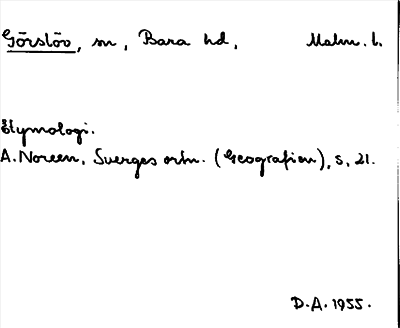 Görslöv, sn, Bara hd, Malm. l.
Etymologi.
A. Noreen, Sverges ortn. (Geografien), s. 21.
D.A. 1955.